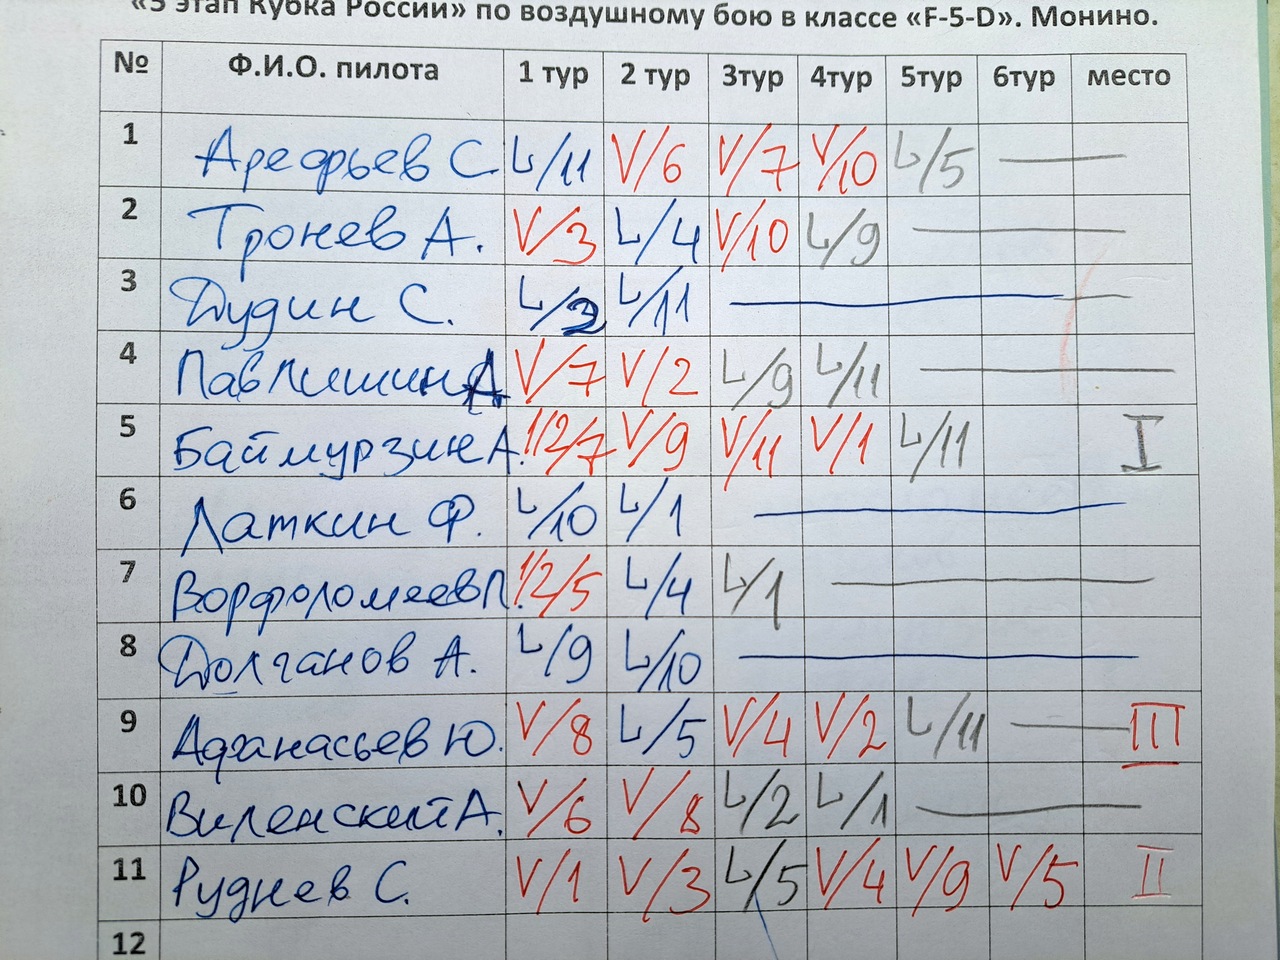 «5 этап Кубка России» по воздушному бою в классе «F-5-D». Монино.
№ Ф.И.О. пилота 1 тур 2 тур 3тур 4тур 5тур 6тур место
1 Арефьев С. L/11 V/6 V/7 V/10 L/5
2 Тронев А. V/3 L/4 V/10 L/9
3 Дудин С. L/2 L/11
4 Павлишин А. V/7 V/2 L/9 L/11
5 Баймурзин А. 1/2/7 V/9 V/11 V/1 L/11 I
6 Латкин Ф. L/10 L/1
7 Ворфоломеев П. 1/2/5 L/4 L/1
8 Долганов А. L/9 L/10
9 Афанасьев Ю. V/8 L/5 V/4 V/2 L/11 III
10 Виленский А. V/6 V/8 L/2 L/1
11 Руднев С. V/1 V/3 L/5 V/4 V/9 V/5 II
12